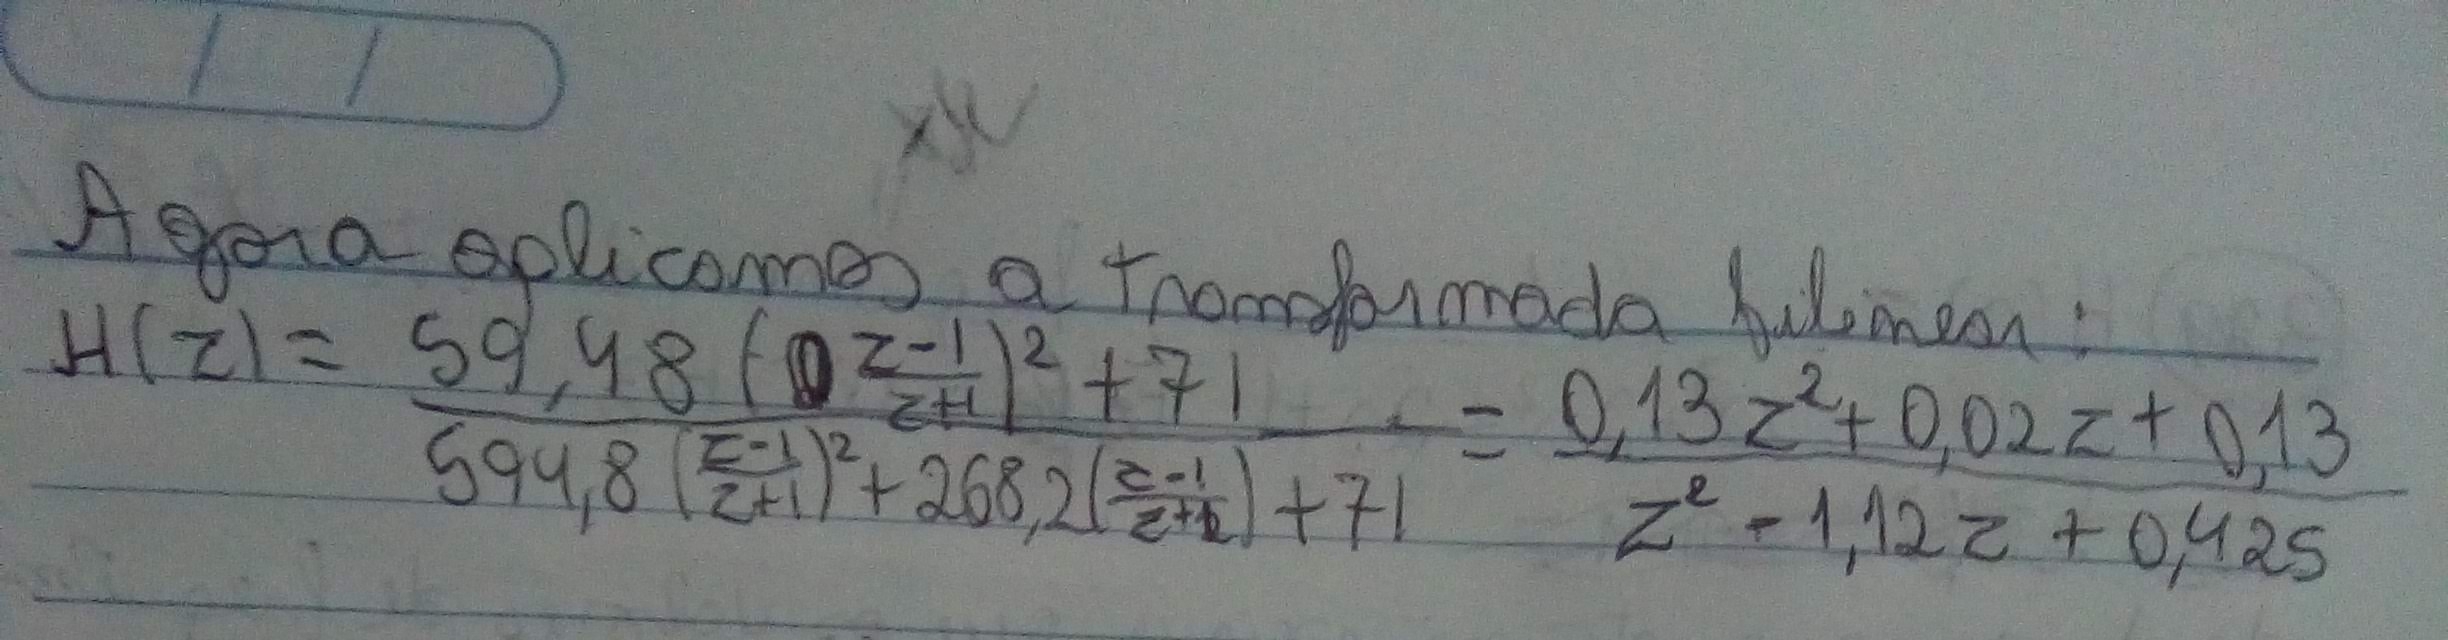 Agora aplicamos a transformada bilinear:
H(z) = \frac{59,48 (\frac{z-1}{z+1})^2 + 71}{594,8 (\frac{z-1}{z+1})^2 + 268,2 (\frac{z-1}{z+1}) + 71} = \frac{0,13z^2 + 0,02z + 0,13}{z^2 - 1,12z + 0,425}